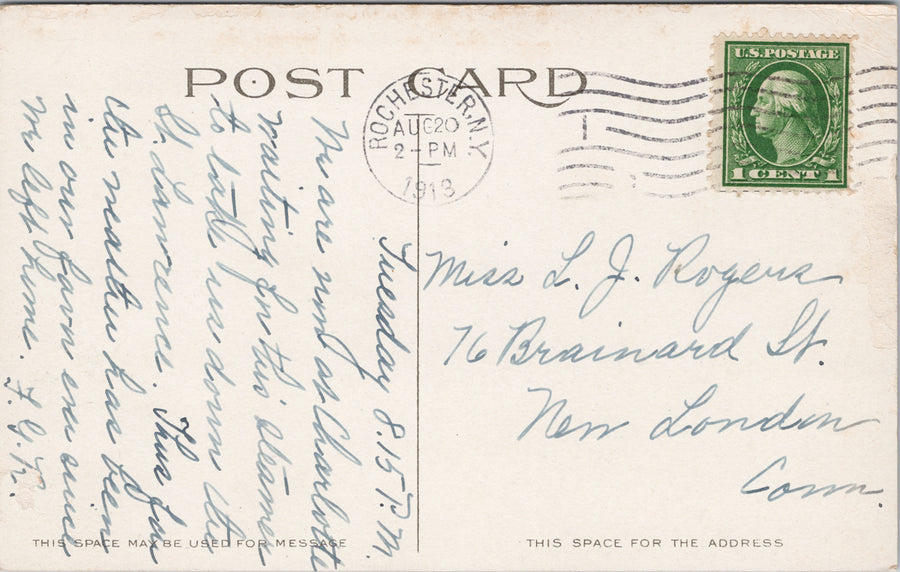 POST CARD
ROCHESTER, N.Y.
AUG 20
2-PM
1913
U.S. POSTAGE
1 CENT 1
Tuesday 8.15 P.M.
We are now at Charlotte
waiting for this steamer
to take us down the
St. Lawrence. Thus far
the weather has been
in our favor ever since
we left home. F.G.R.
Miss L. J. Rogers
76 Brainard St.
New London
Conn.
THIS SPACE MAY BE USED FOR MESSAGE
THIS SPACE FOR THE ADDRESS